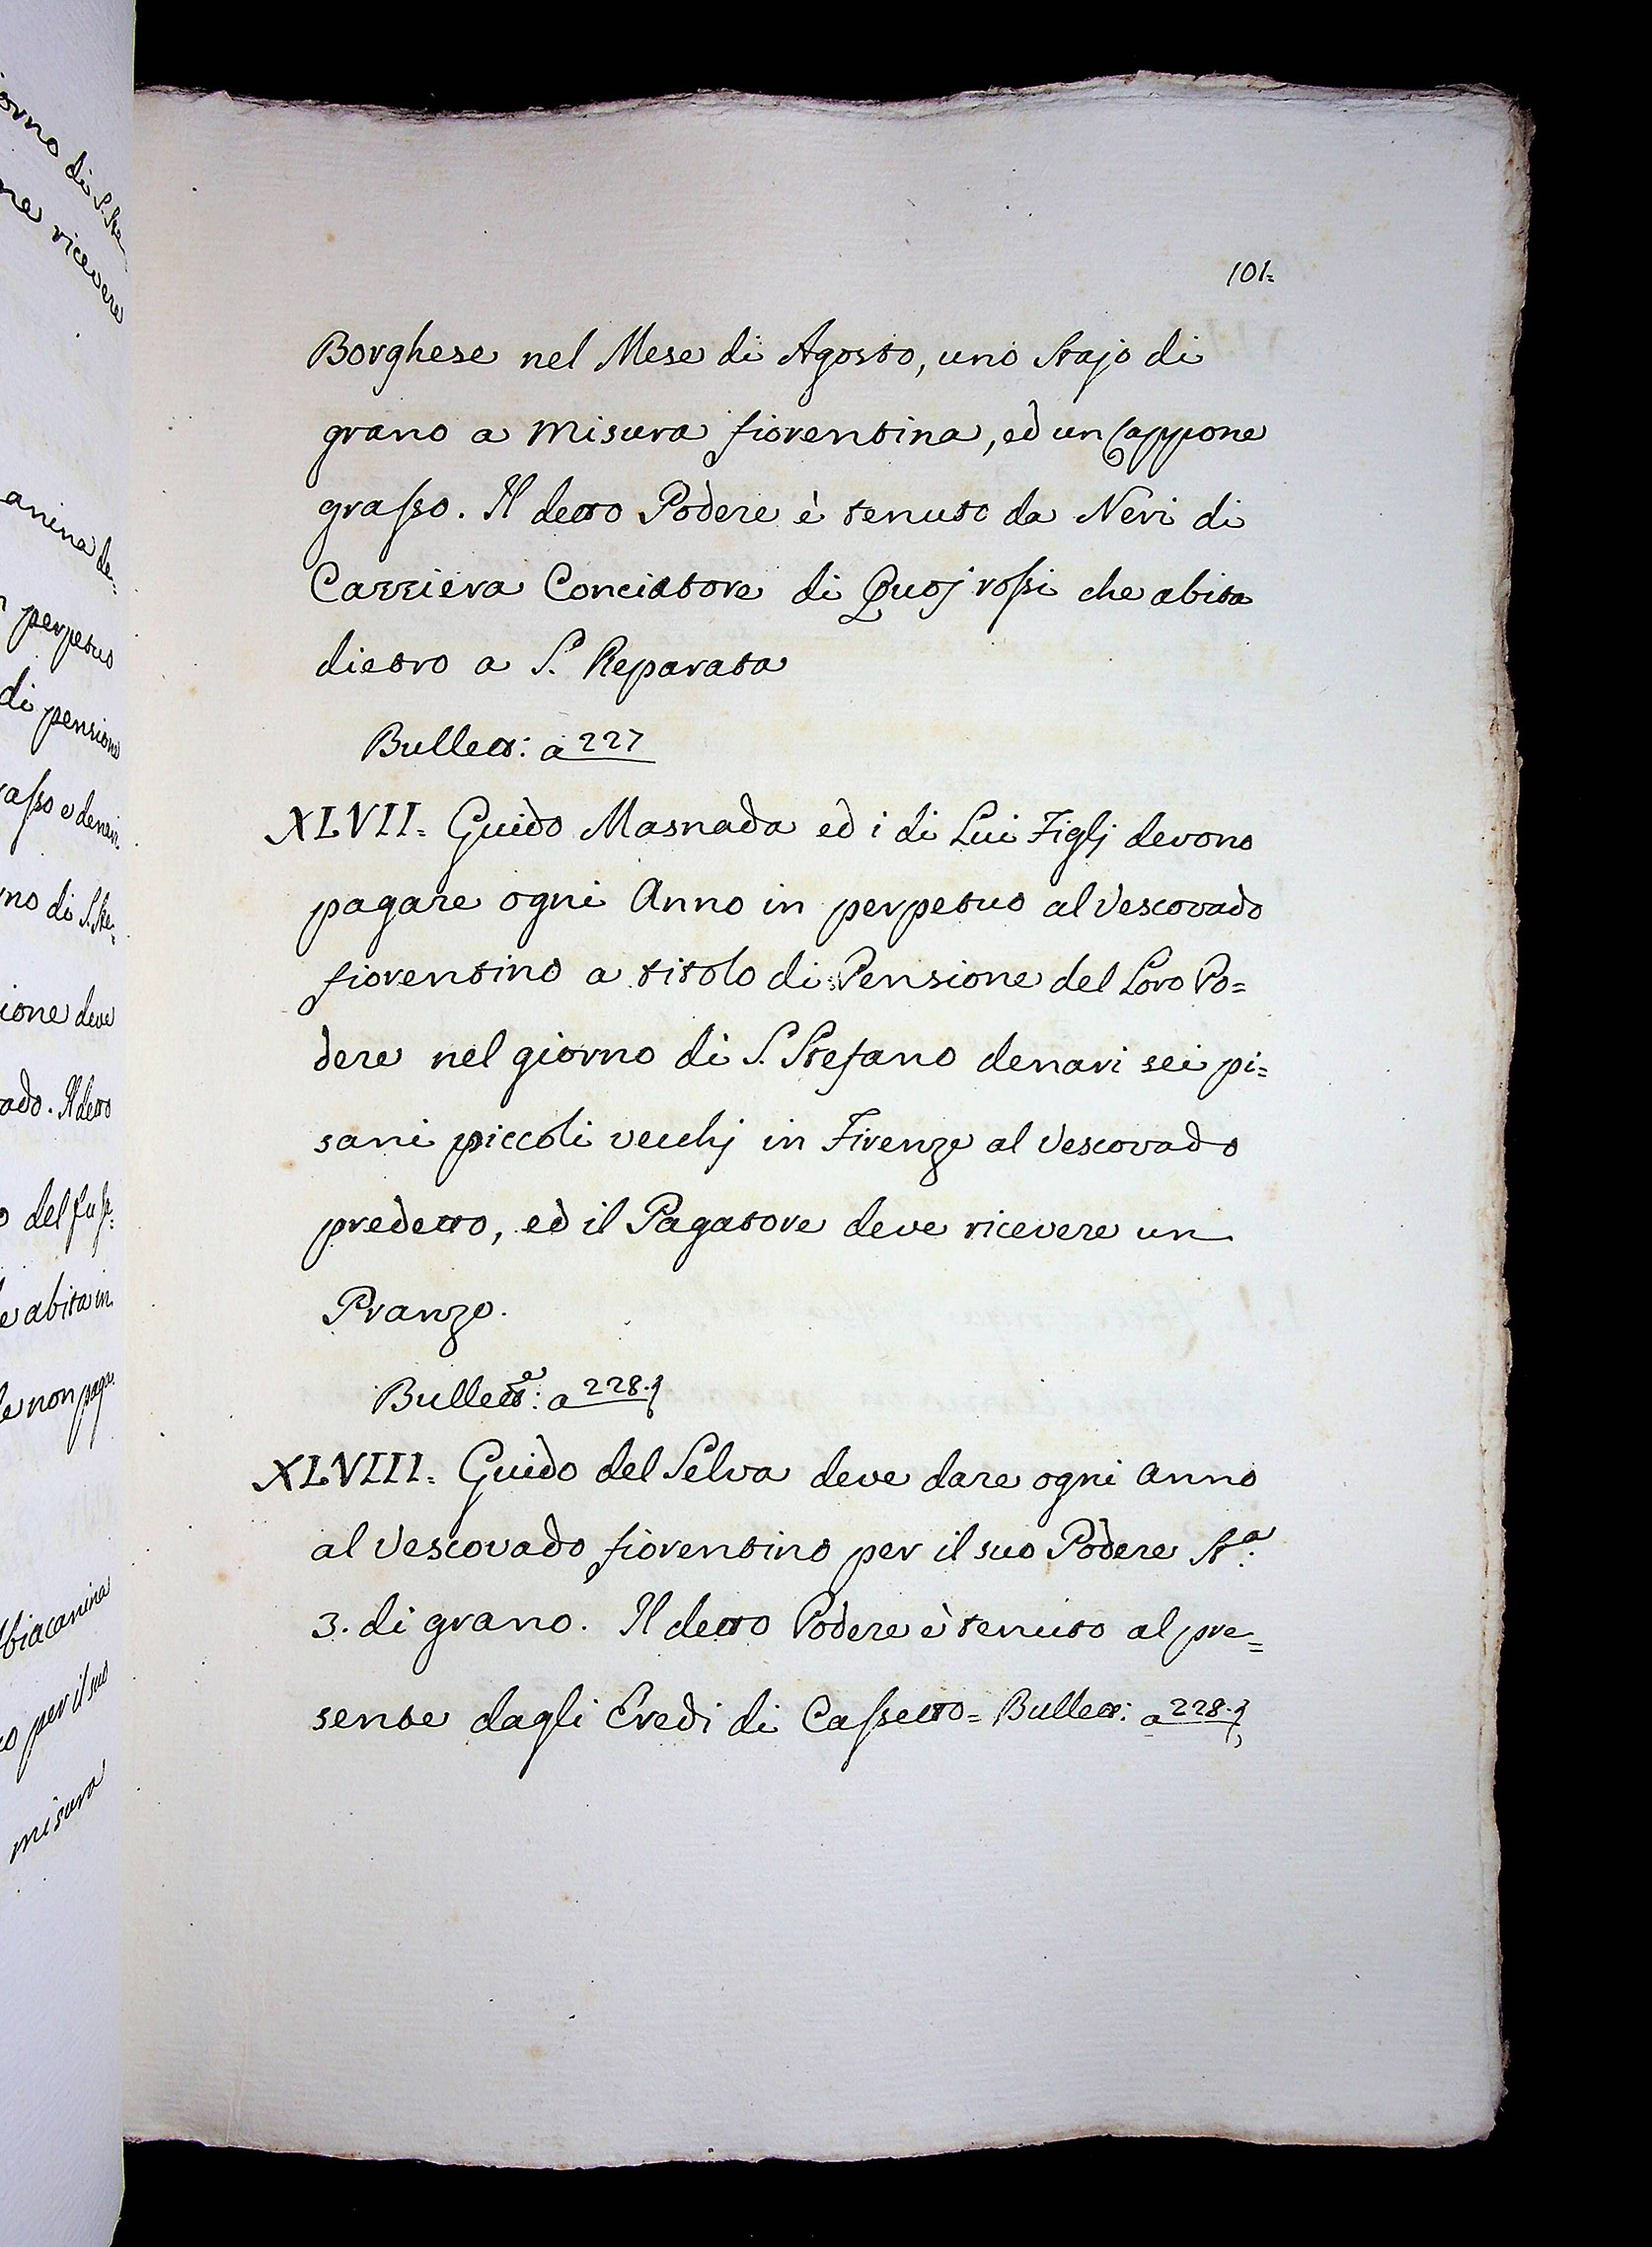 orno di S. Ste
ne ricevere
anina de=
perpetuo
di pensione
rasso e denari
no di S. Ste=
ione deve
ado. Il detto
o del fu
e abita in
le non
biacanina
o per il suo
misura
101=
Borghese nel Mese di Agosto, uno Stajo di
grano a misura fiorentina, ed un Cappone
grasso. Il detto Podere è tenuto da Neri di
Carriera Conciatore di Quoj rossi che abita
dietro a S. Reparata
Bullett: a 227
XLVII= Guido Masnada ed i di Lui Figlj devono
pagare ogni Anno in perpetuo al Vescovado
fiorentino a titolo di Pensione del Loro Po=
dere nel giorno di S. Stefano denari sei pi=
sani piccoli vecchj in Firenze al Vescovado
predetto, ed il Pagatore deve ricevere un
Pranzo.
Bullett.a: a 228.
XLVIII= Guido del Selva deve dare ogni anno
al Vescovado fiorentino per il suo Podere St.a
3. di grano. Il detto Podere è tenuto al pre=
sente dagli Eredi di Cassetto= Bullett: a 228.